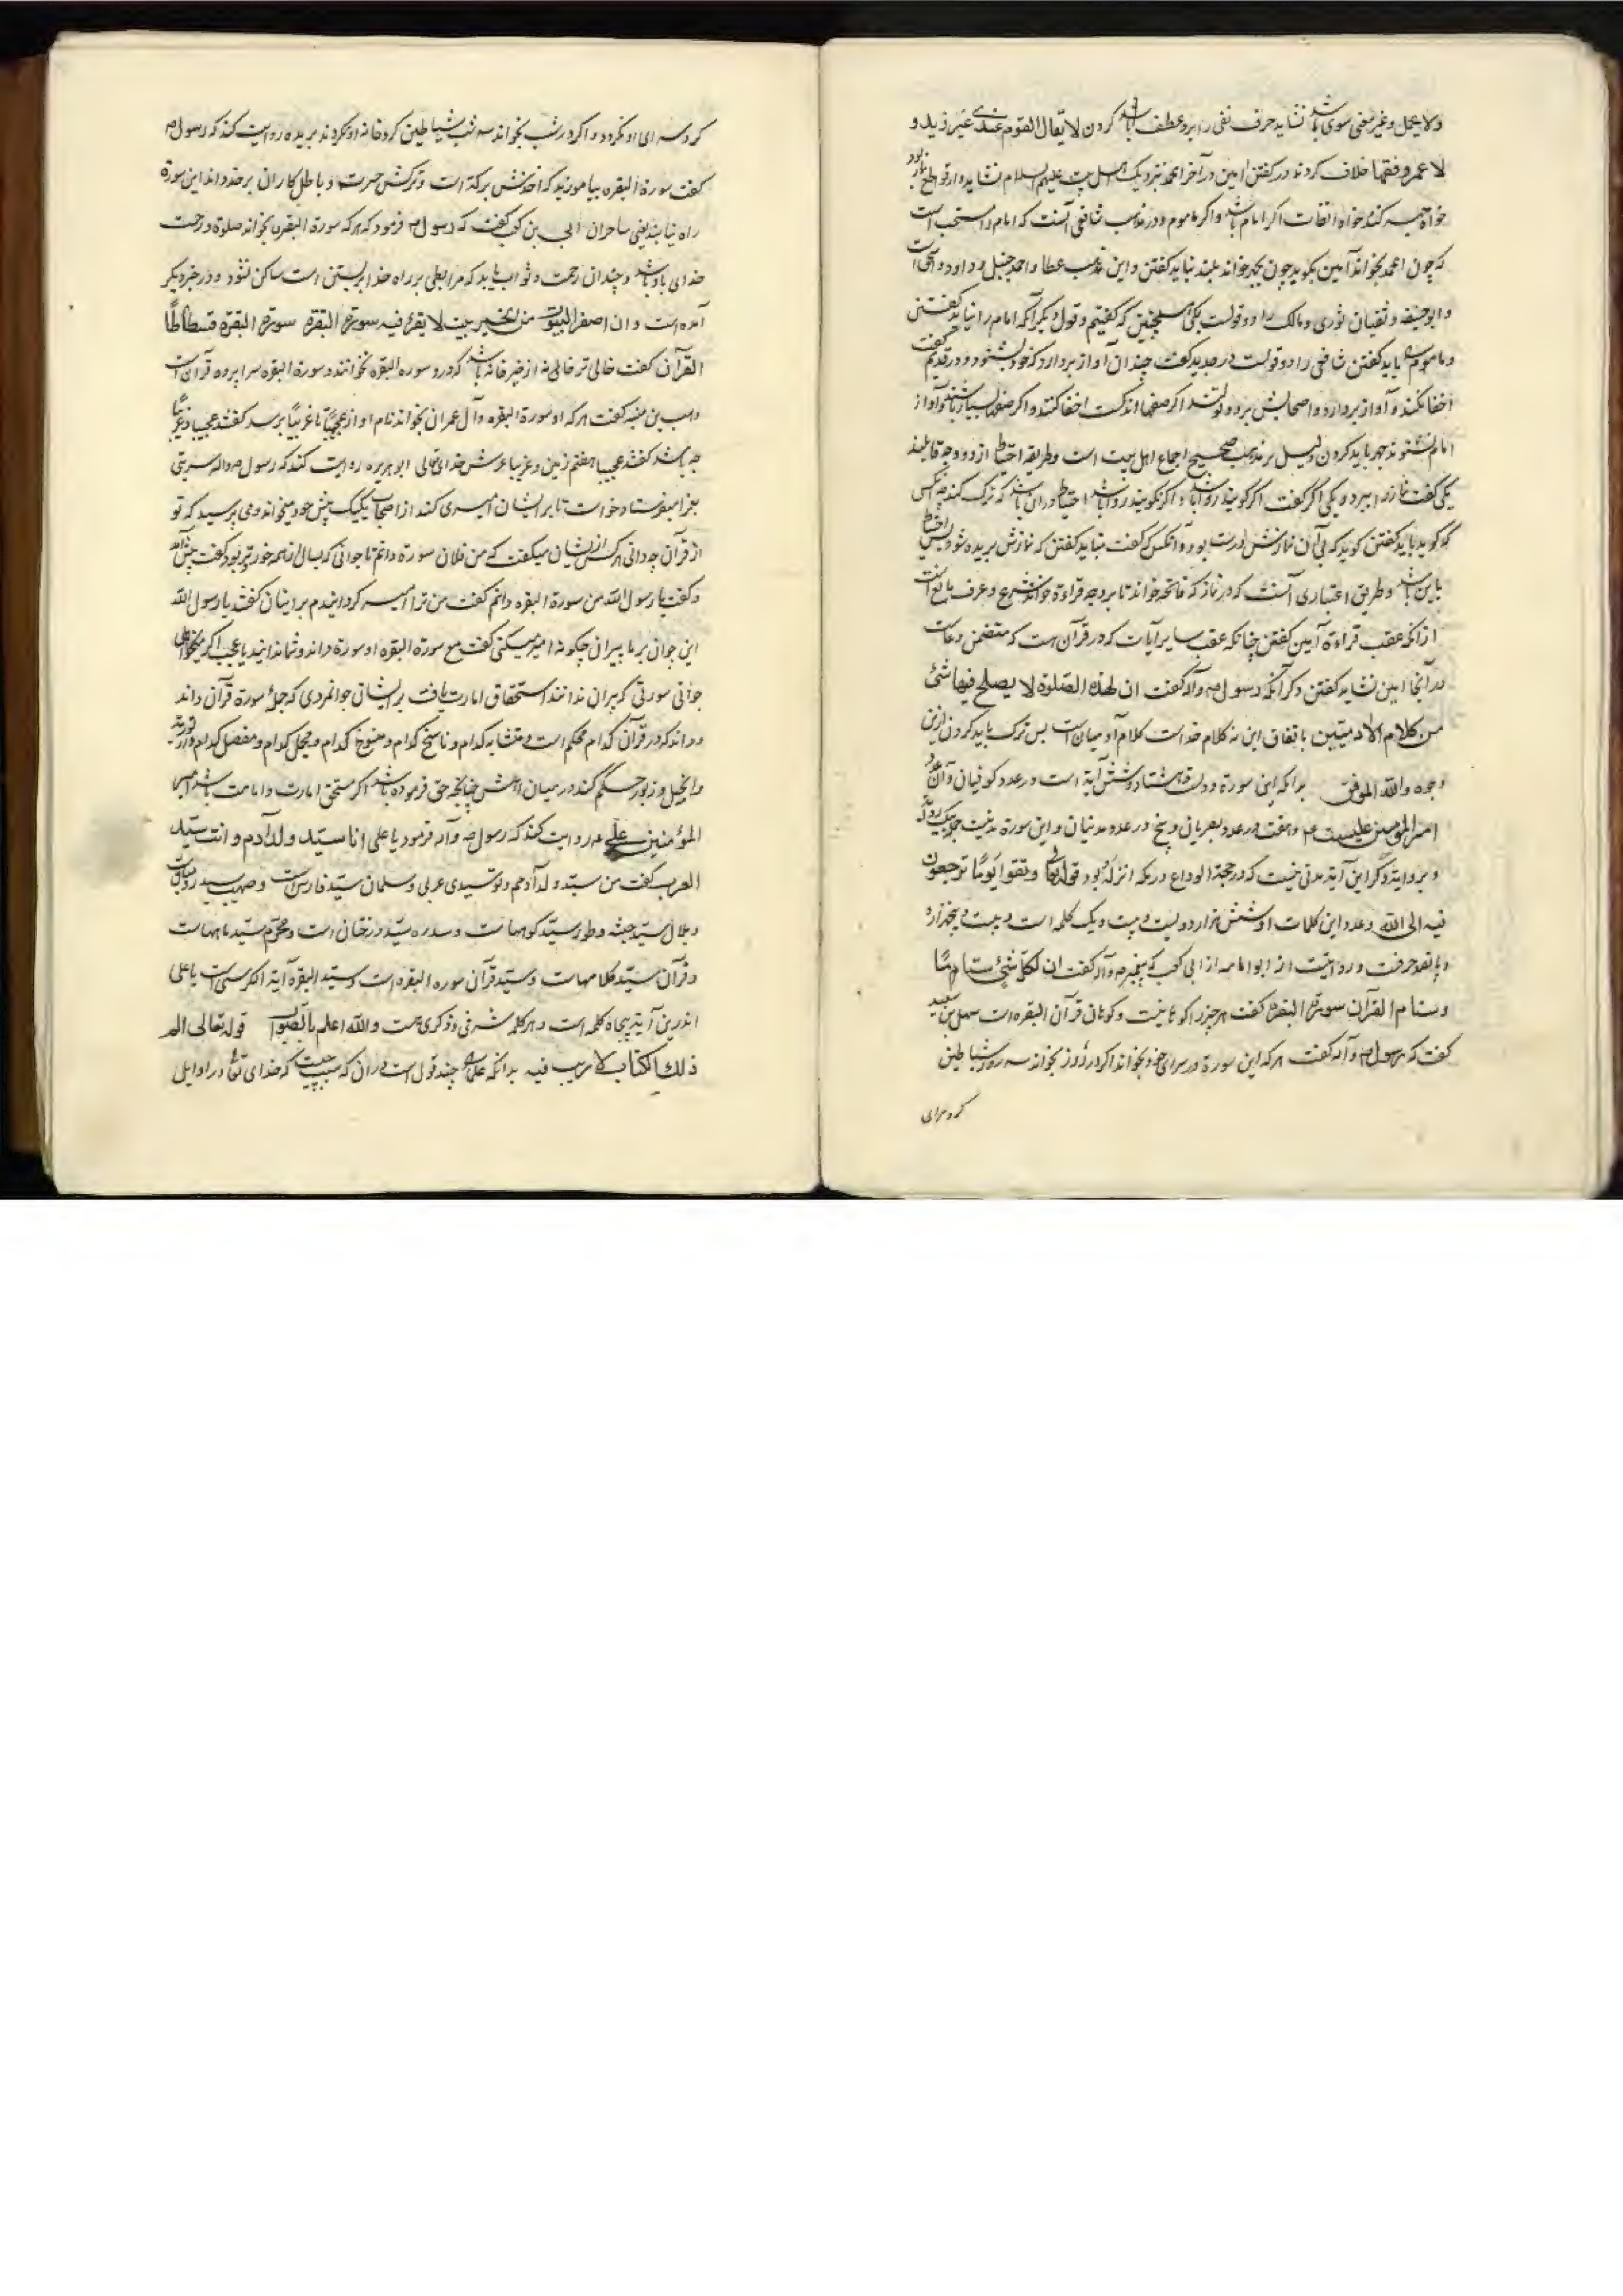 ولا یجمل و غیر بمعنی سوی باشد نشاید حرف نفی را برو عطف کردن لا یقال القوم عندی غیر زید و
لا عمرو فقها خلاف کردند در گفتن امین در آخر الحمد نزدیک اهل بیت علیهم السلام نشاید و از قواطع نماز بود
خواه جهر کند خواه اخفات اگر امام باشد و اگر ماموم و در مذهب شافعی آنست که امام را مستحب است
که چون الحمد بخواند آمین بگوید چون بجهر خواند بلند نباید گفتن و این مذهب عطا و احمد حنبل و داود و اسحق است
و ابو حنیفه و سفیان ثوری و مالک را دو قولست یکی همچنین که گفتیم و قول دیگر آنکه امام را نباید گفتن
و ماموم را باید گفتن شافعی را دو قولست در جدید گفت چندان آواز بردارد که خود بشنود و در قدیم گفت
اخفا نکند و آواز بردارد و اصحابش بر دو قولند اگر صفها اندکست اخفا کنند و اگر صفها بسیار باشد و آواز
امام نشنوند جهر باید کردن دلیل بر مذهب صحیح اجماع اهل بیت است و طریقه احتیاط از دو وجه
یکی گفت نماز را ببرد و یکی اگر گفت اگر گویند روا باشد و اگر نگویند روا باشد احتیاط در آن باشد که ترک کنند
که گوید باید گفتن گوید که بی آن نمازش درست بود و آنکس که گفت نباید گفتن که نمازش بریده شود پس احتیاط
باین باشد و طریق اعتباری آنست که در نماز که فاتحه خواند تا بر وجه قراءة خواند شرع و عرف مانع است
از آنکه عقب قراءة آمین گفتن چنانکه عقب سایر آیات که در قرآن هست که متضمن دعاست
در آنجا امین نشاید گفتن دگر آنکه رسول ص و آله گفت ان هذه الصلوة لا یصلح فیها شئ
من کلام الادمیین باتفاق این نه کلام خداست کلام آدمیان است پس ترک باید کردن ازین
وجوه والله الموفق بدانکه این سورة دویست و هشتاد و شش آیة است در عدد کوفیان و آن عدد
امیر المؤمنین علیست ع و هفت در عدد بصریان و پنج در عدد مدنیان و این سورة مدنیست
و بروایة دگر این آیة مدنی نیست که در حجة الوداع در مکه انزله بود قوله تعالی و اتقوا یوما ترجعون
فیه الی الله و عدد این کلمات او شش هزار و دویست و بیست و یک کلمه است و بیست و پنجهزار
و پانصد حرفست و روایتست از ابو امامه از ابی کعب که پیغمبر ص و آله گفت ان لکل شئ سناما
و سنام القرآن سورة البقرة گفت هر چیز را کوهانیست و کوهان قرآن البقره است سهل بن سعید
گفت که رسول ص و آله گفت هر که این سورة در سرای خود بخواند اگر در روز بخواند سه روز شیاطین
گرد سرای
گرد سرای او نگردد و اگر در شب بخواند سه شب شیاطین گرد خانه او نگردند بریده روایت کند که رسول ص
گفت سورة البقره بیاموزید که اخذش برکة است و ترکش حسرت و باطل کاران بر خداوند این سورة
راه نیابند یعنی ساحران ابی بن کعب گفت که رسول ص فرمود که هر که سورة البقره بخواند صلوة و رحمت
خدای باو باشد و چندان رحمت و ثواب یابد که مرابطی بر راه خدا بر بستن است ساکن نشود و در خبر دیگر
آمده است و ان اصفر البیوت من الخیر بیت لا یقرء فیه سورة البقرة سورة البقرة فسطاط
القرآن گفت خالی تر خانه از خیر خانه باشد که درو سوره البقره نخوانند و سورة البقره سراپرده قرآن است
وهب بن منبه گفت هر که او سورة البقره و آل عمران بخواند نام او از عجیبا تا غریبا برسد گفتند عجیبا و غریبا
چه باشد گفتند عجیبا هفتم زمین و غریبا عرش خدای تعالی ابو هریره روایت کند که رسول ص و اله سریتی
بغزا میفرستاد خواست تا بر ایشان امیری کند از اصحاب یکیک پیش خود میخواند و می پرسید که تو
از قرآن چه دانی هر کس از ایشان میگفت که من فلان سورة دانم تا جوانی که بسال از همه خوردتر بود گفت پیش آمد
و گفت یا رسول الله من سورة البقره دانم گفت من ترا امیر گردانیدم بر اینان گفتند یا رسول الله
این جوان بر ما پیران چگونه امیر میکنی گفت مع سورة البقره او سورة داند و شما ندانید یا عجب اگر
جوانی سورتی که پیران ندانند استحقاق امارت یافت بر ایشان جوانمردی که جمله سورة قرآن داند
و داند که در قرآن کدام محکم است و متشابه کدام و ناسخ کدام و منسوخ کدام و مجمل کدام و مفصل کدام و از توریة
و انجیل و زبور حکم کند در میان اهلش چنانچه حق فرموده باشد اگر مستحق امارت و امامت باشد امیر
المؤمنین علی ع روایت کند که رسول ص و آله فرمود یا علی انا سید ولد آدم و انت سید
العرب گفت من سید ولد آدمم و تو سیدی عربی و سلمان سید فارس است و صهیب سید روم است
و بلال سید حبشه و طور سید کوههاست و سدره سید درختان است و محرم سید ماههاست
و قرآن سید کلامهاست و سید قرآن سوره البقره است و سید البقره آیة الکرسی است یا علی
اندرین آیة پنجاه کلمه است و هر کلمه شرفی و ذکری هست والله اعلم بالصواب قوله تعالی الم
ذلک الکتاب لا ریب فیه بدانکه علما را چند قول است در آن که سبب چیست که خدای تعالی در اوایل